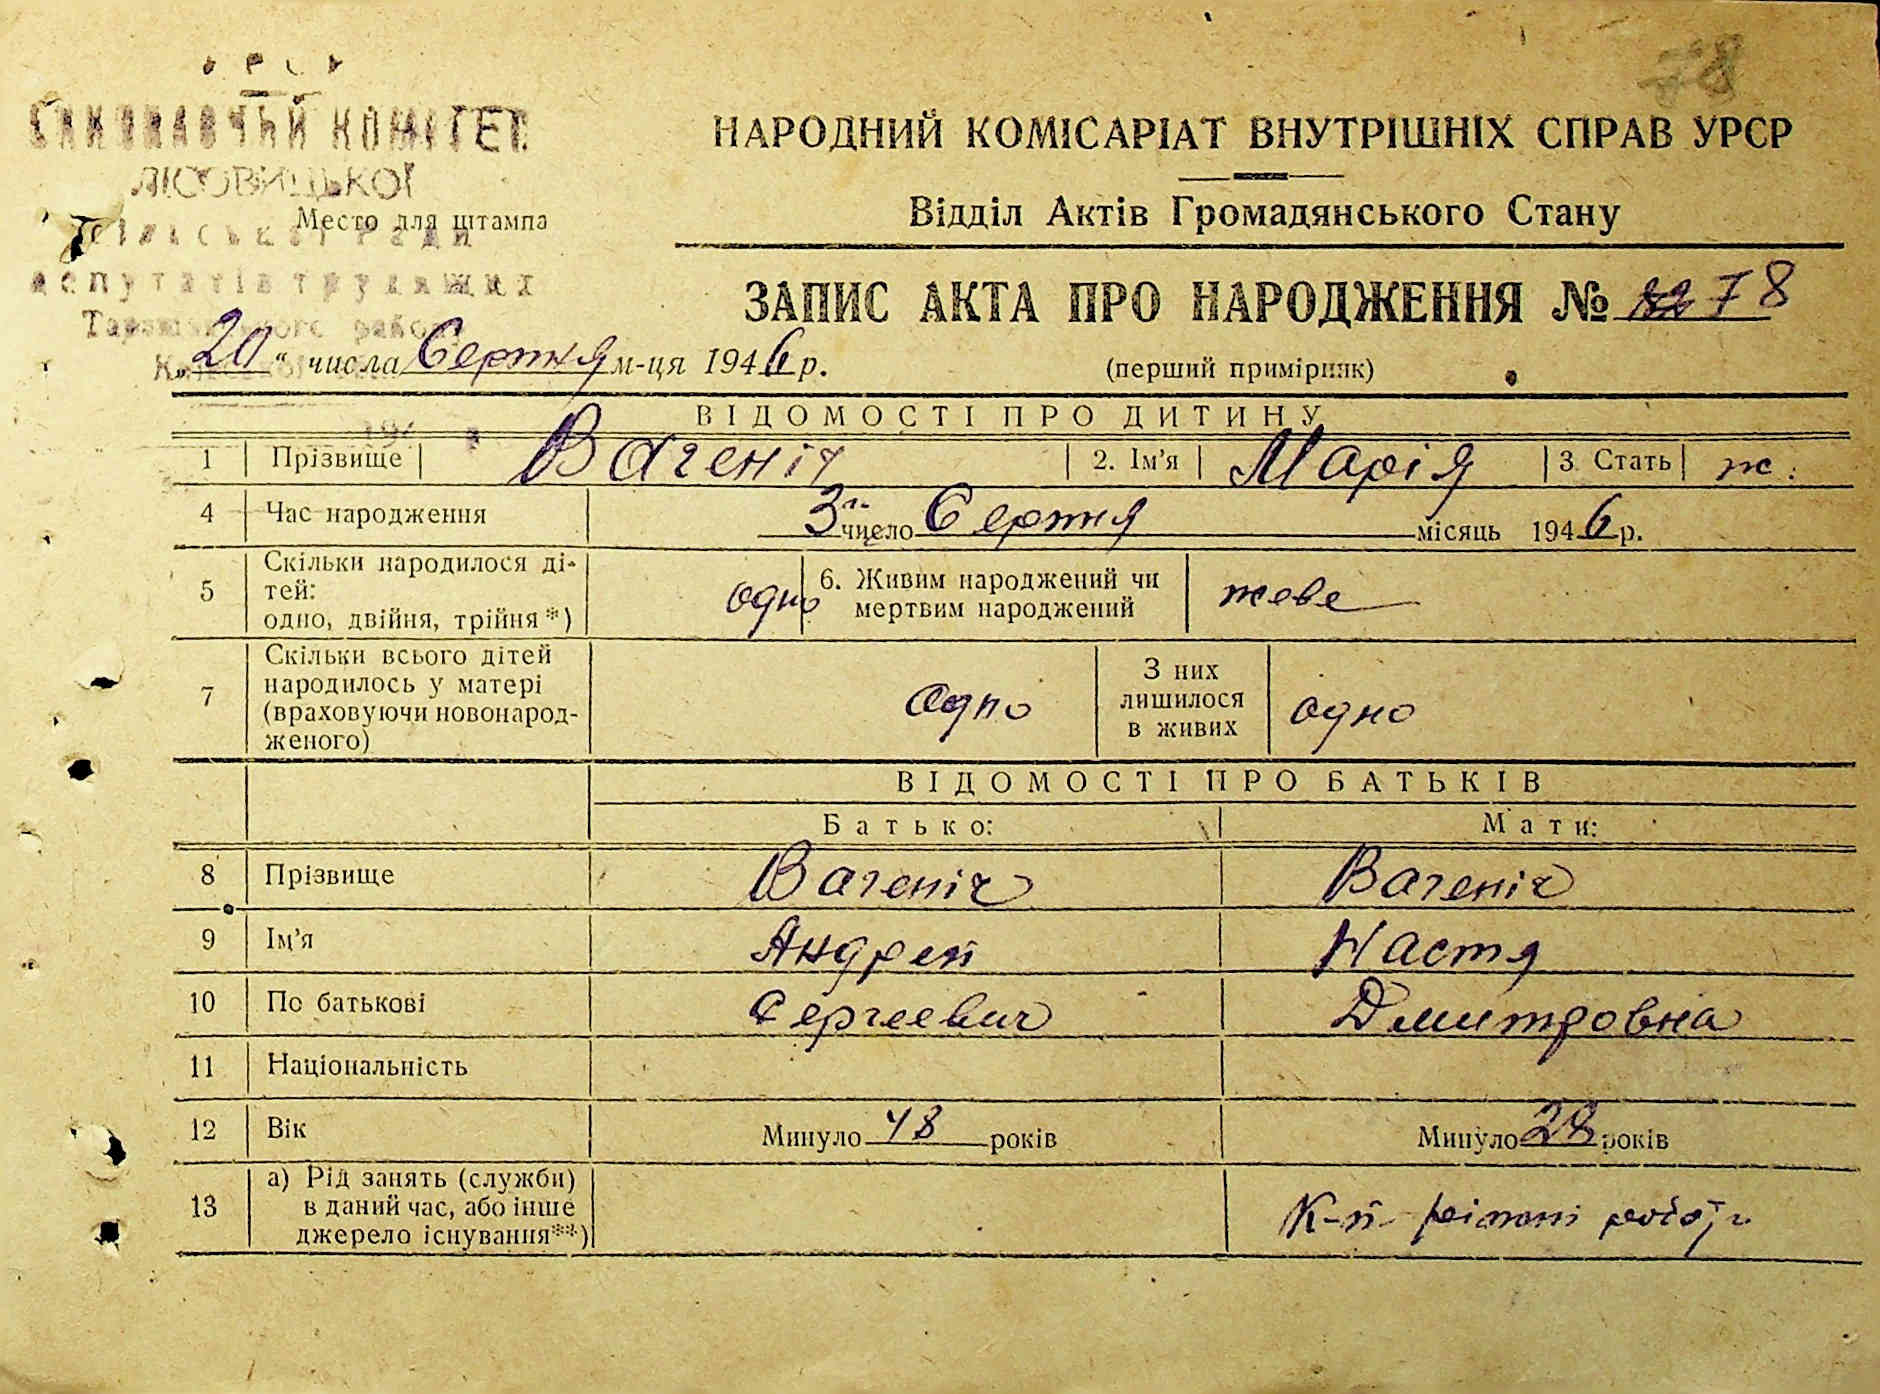 78
УРСР
ВИКОНАВЧИЙ КОМІТЕТ
ЛІСОВИЦЬКОЇ
Место для штампа
сільської Ради
депутатів трудящих
Таращанського району
НАРОДНИЙ КОМІСАРІАТ ВНУТРІШНІХ СПРАВ УРСР
Відділ Актів Громадянського Стану
ЗАПИС АКТА ПРО НАРОДЖЕННЯ № 78
„20“ числа Серпня м-ця 1946 р.
(перший примірник)
ВІДОМОСТІ ПРО ДИТИНУ
1 Прізвище Вагеніч 2. Ім'я Марія 3 Стать ж.
4 Час народження 3го число Серпня місяць 1946 р.
5 Скільки народилося ді-
тей:
одно, двійня, трійня *) одно
6. Живим народжений чи
мертвим народжений живе
7 Скільки всього дітей
народилось у матері
(враховуючи новонарод-
женого) одно
З них
лишилося
в живих одно
ВІДОМОСТІ ПРО БАТЬКІВ
Батько: Мати:
8 Прізвище Вагеніч Вагеніч
9 Ім'я Андрей Настя
10 По батькові Сергеевич Дмитровна
11 Національність
12 Вік Минуло 48 років Минуло 28 років
13 а) Рід занять (служби)
в даний час, або інше
джерело існування**) К-п різноні роботи